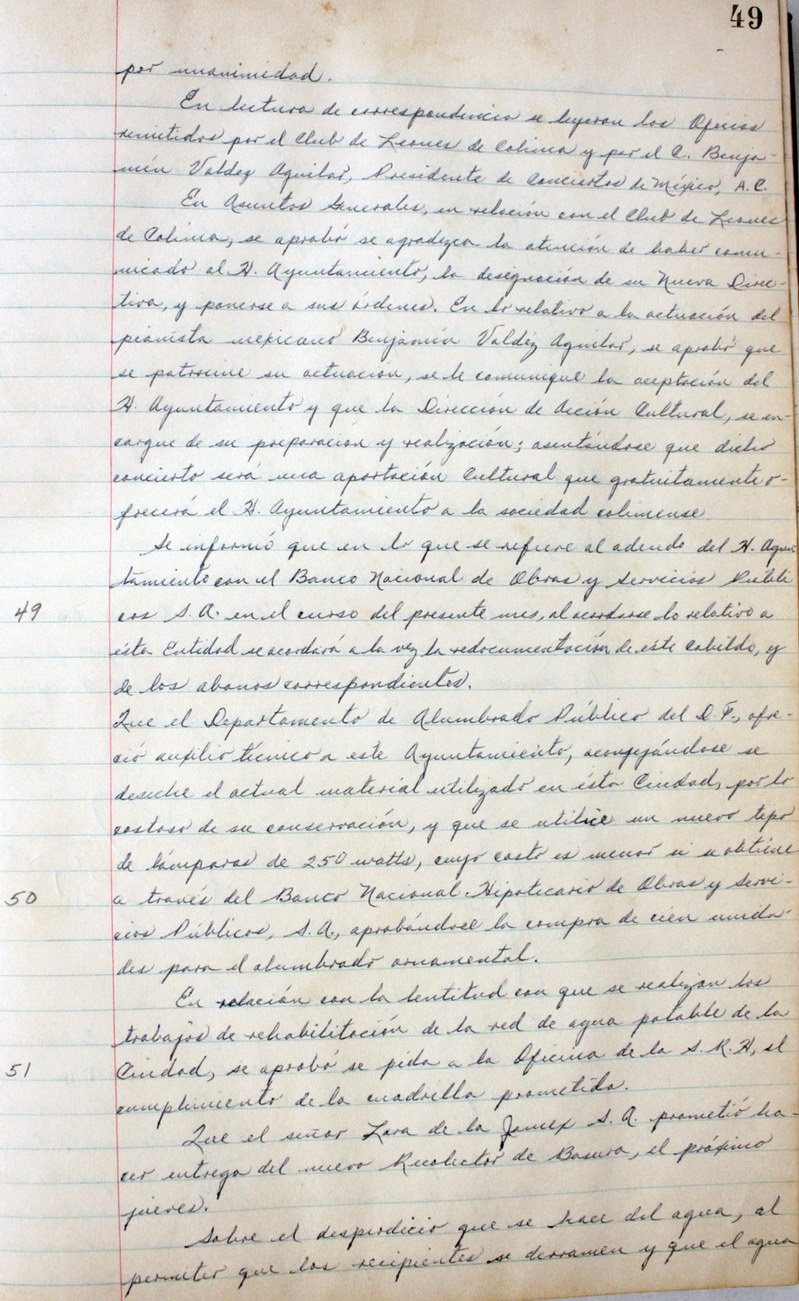 49
por unanimidad.
En lectura de correspondencia se leyeron los Oficios
remitidos por el Club de Leones de Colima y por el C. Benja-
mín Valdez Aguilar, Presidente de Conciertos de México, A.C.
En Asuntos Generales, en relación con el Club de Leones
de Colima, se aprobó se agradezca la atención de haber comu-
nicado al H. Ayuntamiento, la designación de su Nueva Direc-
tiva, y ponerse a sus órdenes. En lo relativo a la actuación del
pianista mexicano Benjamín Valdéz Aguilar, se aprobó que
se patrocine su actuación, se le comunique la aceptación del
H. Ayuntamiento y que la Dirección de Acción Cultural, se en-
cargue de su preparación y realización; asentándose que dicho
concierto será una aportación Cultural que gratuitamente o-
frecerá el H. Ayuntamiento a la sociedad colimense.
Se informó que en lo que se refiere al adeudo del H. Ayun
tamiento con el Banco Nacional de Obras y Servicios Públi
49 cos S.A. en el curso del presente mes, al acordarse lo relativo a
ésta Entidad se acordará a la vez la redocumentación de este Cabildo, y
de los abonos correspondientes.
Que el Departamento de Alumbrado Público del D.F., ofre-
ció auxilio técnico a este Ayuntamiento, aconsejándose se
deseche el actual material utilizado en ésta Ciudad, por lo
costoso de su conservación, y que se utilice un nuevo tipo
de lámparas de 250 watts, cuyo costo es menor si se obtiene
50 a través del Banco Nacional Hipotecario de Obras y Servi-
cios Públicos, S.A., aprobándose la compra de cien unida-
des para el alumbrado ornamental.
En relación con la lentitud con que se realizan los
trabajos de rehabilitación de la red de agua potable de la
51 Ciudad, se aprobó se pida a la Oficina de la S.R.H, el
cumplimiento de la cuadrilla prometida.
Que el señor Lara de la S.A. prometió ha-
cer entrega del nuevo Recolector de Basura, el próximo
jueves.
Sobre el desperdicio que se hace del agua, al
permitir que los recipientes se derramen y que el agua